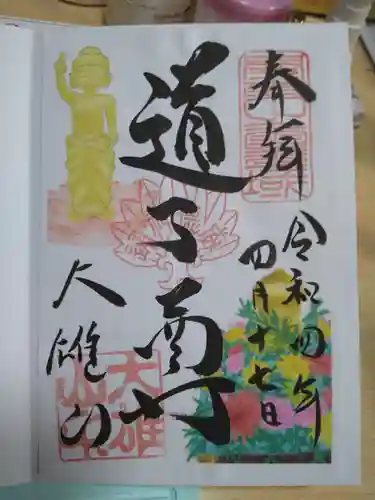 奉拝
令和四年
四月十七日
道了尊
大雄山